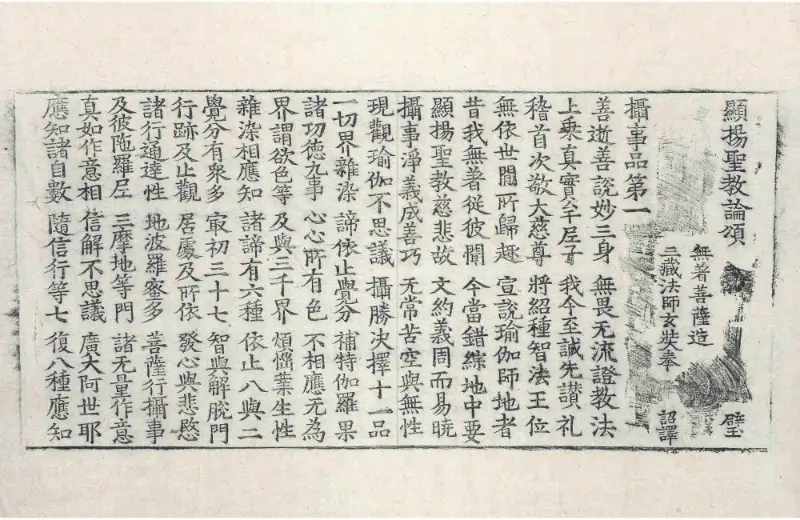 顯揚聖教論頌 璧
無著菩薩造
三藏法師玄奘奉 詔譯
攝事品第一
善逝善說妙三身 無畏无流證教法
上乗真實牟尼子 我今至誠先讃礼
稽首次敬大慈尊 將紹種智法王位
無依世間所歸趣 宣說瑜伽師地者
昔我無著從彼聞 今當錯綜地中要
顯揚聖教慈悲故 文約義周而易曉
攝事淨義成善巧 無常苦空與無性
現觀瑜伽不思議 攝勝決擇十一品
一切界雜染 諦依止覺分 補特伽羅果
諸功徳九事 心心所有色 不相應无為
界謂欲色等 及與三千界 煩惱業生性
雜染相應知 諸諦有六種 依止八與二
覺分有衆多 㝡初三十七 智與解脫門
行跡及止觀 居處及所依 發心與悲愍
諸行通達性 地波羅蜜多 菩薩行攝事
及彼陁羅尼 三摩地等門 諸无量作意
真如作意相 信解不思議 廣大阿世耶
應知諸自數 隨信行等七 復八種應知